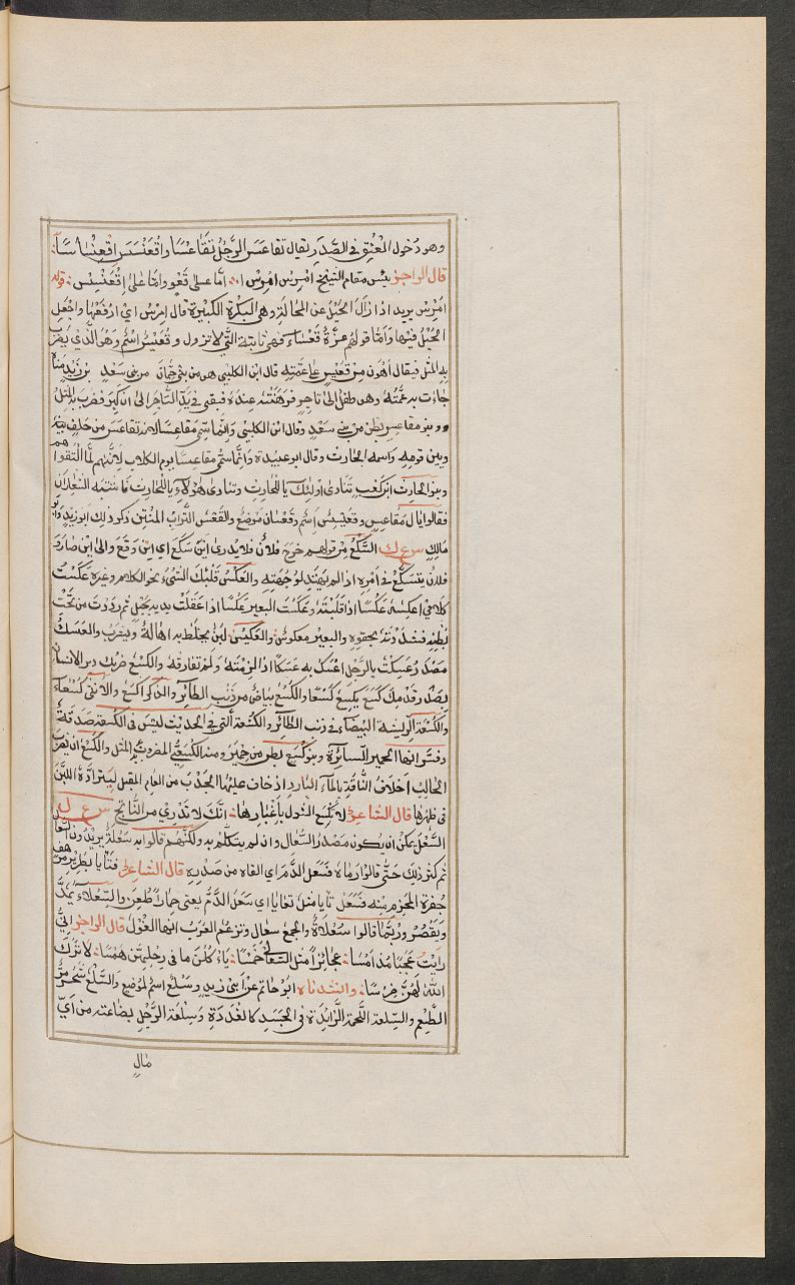 وهو دخول العُنُق في الصَّدر يقال تقاعسَ الرَّجلُ تقاعُسًا واقْعَنْسَسَ اقْعِنْسَاسًا
قال الراجز بئس مقام الشيخ امْرِس امْرِس امّا على قَعْوٍ وامّا على اِقْعَنْسِسْ قوله
اَمْرِسْ يريد اذا زال الحَبْل عن المحالة وهي البَكْرة الكبيرة قال اِمرِسْ اي ارفعها واجعلِ
الحَبْل فيها وامّا قولهم عزّة قعساء فهي ثابتة التي لا تزول وقُعَيْسٌ اسْمٌ وهُو الَّذي يضرب
به المثل فيقال أهون مِن قُعَيْسٍ على عمّتِه قال ابن الكلبي هو من بني من بني سَعْدٍ بن زيد مناة
جاءت به عمّتُه وهو طفل الى تاجرٍ فرهنته عنده فبقي في يد التاجر الى ان كبر فضرب به المثل
وبنو مقاعس بطن من بني سعد وقال ابن الكلبي وانما سمي مقاعسًا لانه تقاعس من حلف بينه
وبين قومه واسمه الحارث وقال ابو عبيدة وانّما سُمّي مقاعسا يوم الكلاب لانّهم لمّا التقوا هم
وبنو الحارث ابن كعب تنادى اولئك يا للحارث وتنادى هؤلاء يا للحارث فاشتبه الشعاران
فقالوا يال مقاعِسٍ وقعيسيسٌ اسم وقعسان موضع والقَعْس التّراب المنتِن ذكر ذلك ابو زيد وابو
مالكٍ س ع ك السَّكْع من قولهم خرج فلان فلا يدرى اين سكع اي اين وقع والى اين صار و
فلان يتسكّع في امره اذا لم يهتدِ لوُجْهتِه والعَكْس قلبك الشيء نحو الكلام وغيره عكستُ
كلامي اعكِسُه عَكْسًا اذا قلبْتَه وعكست البعير عَكْسًا اذا عقلت يديه بحبل ثم رددت من تحت
بطنه فشددته بحقوه والبعير معكوس والعَكيسُ لبنٌ يخلط به اهالةٌ ويشرب والعَسَك
مَصْدر عَسِكْتُ بالرّجل اعْسَك به عَسَكًا اذا لزمتَه ولم تفارقه والكَسْع ضربك دبر الانسان
بصدر قدمك كسع يكسع كَسْعًا والكُسَع بياض من ذَنَب الطائر والذكر اكسع والانثى كسعاء
والكُسْعة الريشة البيضاء في ذنب الطائر والكُسْعة الّتي في الحديث ليس في الكسعة صَدَقةٌ
وفسّروا انها الحمير السائرة وبنو كُسَع بطن من حِمْيَر ومنه الكُسَعيُّ المضروب به المثل والكَسْع ان يَضرِبَ
الحالب اَخلافَ الناقة بالماء البارد اذا خاف عليها الجدب من العام المقبل ليترادّ اللبن
في ظهرها قال الشاعر لا تَكْسَع الشَّوْل باَغْبارِها انّك لا تدري من الناتج س ع ل
السَّعْل يمكن ان يكون مصدر السُّعال وان لم يتكلم به ولكنّهم قالوا به سُعْلة يريدون السُّعال
ثم كثر ذلك حتّى قالوا رماه فسَعَل الدَّمَ اي القاه من صدره قال الشاعر فتآيا بطرير مرهف
جُفرة المحزم منه فسَعَل تآيا مثل تعايا اي سعل الدَّم يعني حمارًا طُعِن والسِّعلاء يُمَدُّ
ويُقصَر وربّما قالوا سِعْلاةٌ والجمع سَعالٍ وتزعم العَرَبُ انّها الغُول قال الراجز اِنّي
رايت عجبًا مذ امْسا عجائزًا مثل السَّعالى خَمْسا يأكُلْن ما في رحلهنّ همسا لا ترك
الله لهنّ ضِرسًا وانشدناه ابو حاتم عن ابي زيد وسَلْع اسم لموضع والسَّلَع شجر مرُّ
الطَّعم والسِّلعة اللحمة الزّائدة في الجسد كالغُدَدة وسِلْعة الرَّجُل بضاعته من أيّ
مالٍ